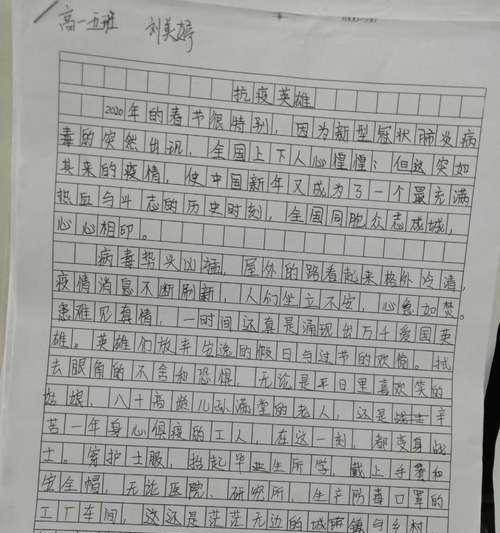 高一五班 刘美婷
抗疫英雄
2020年的春节很特别，因为新型冠状肺炎病
毒的突然出现，全国上下人心惶惶；但这突如
其来的疫情，使中国新年又成为了一个最充满
热血与斗志的历史时刻，全国同胞众志成城，
心心相印。
病毒势头凶猛，屋外的路看起来格外冷清，
疫情消息不断刷新，人们坐立不安，心急如焚。
患难见真情，一时间还真是涌现出万千爱国英
雄。英雄们放弃安逸的假日与过节的欢愉。拭
去眼角的不舍和恐惧，无论是平日里喜欢笑的
姑娘，八十高龄儿孙满堂的老人，还是辛
苦一年身心俱疲的工人，在这一刻，都变身战
士。穿护士服，拾起毕业生所学，戴上手套和
安全帽，无论医院、研究所，生产防毒口罩的
工厂车间，这还是茫茫无边的城镇与乡村